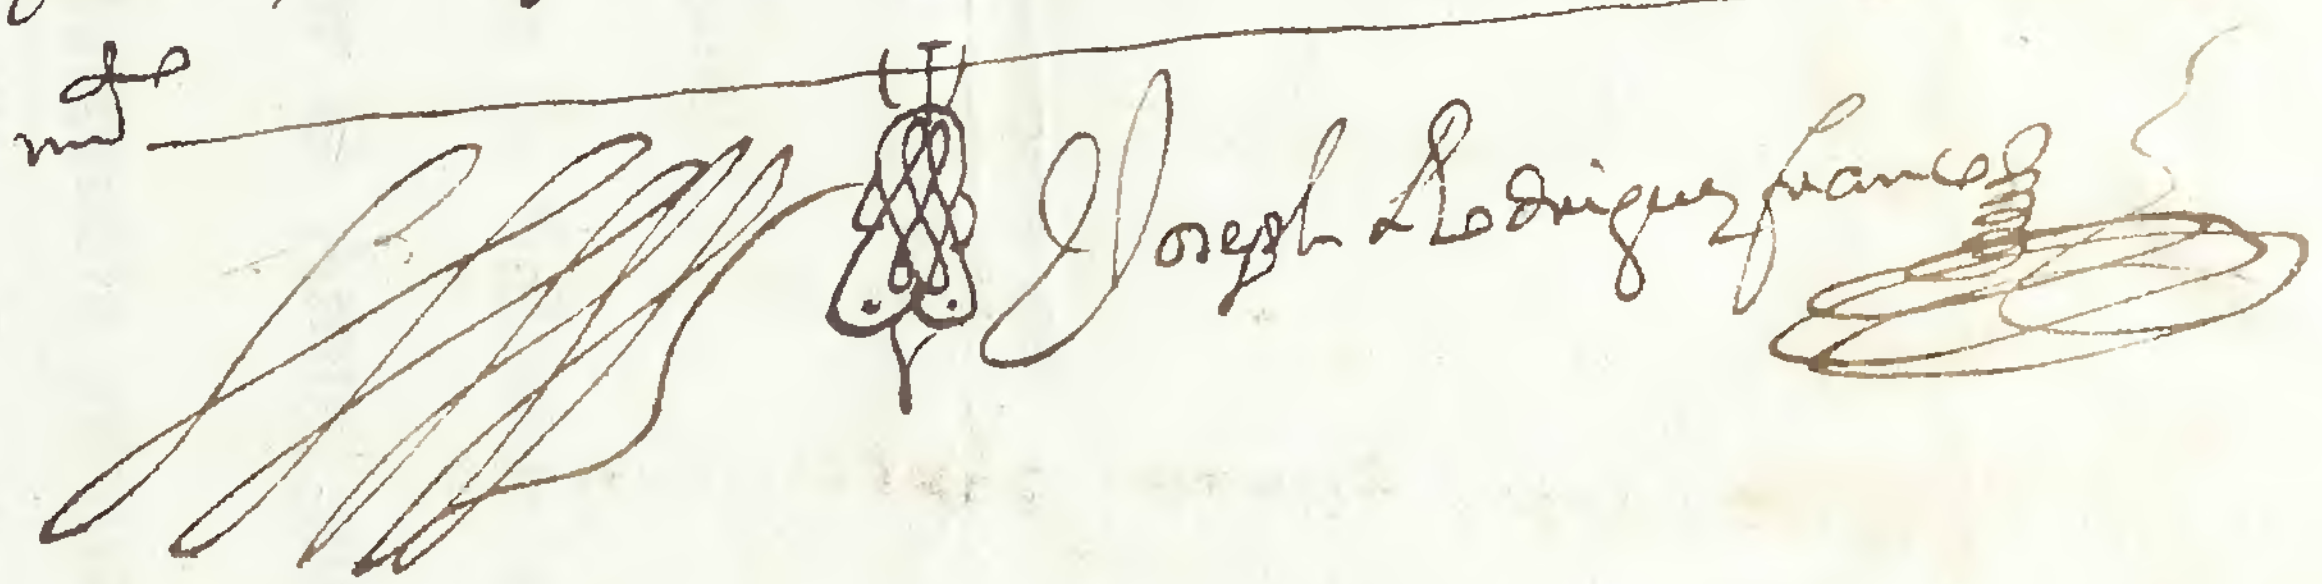 Joseph Rodriguez frances